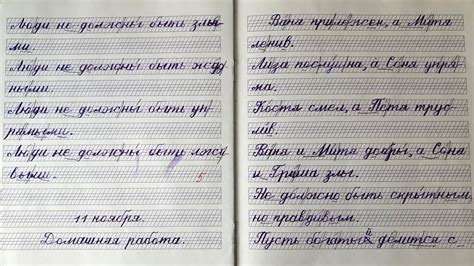 Люди не должны быть злы-
ми.
Люди не должны быть жад-
ными.
Люди не должны быть уп-
рямыми.
Люди не должны быть лжи-
выми.
5
11 ноября.
Домашняя работа.
Ваня прилежен, а Митя
ленив.
Лиза послушна, а Соня упря-
ма.
Костя смел, а Петя трус-
лив.
Ваня и Митя добры, а Соня
и Гриша злы.
Не должно быть скрытным,
но правдивым.
Пусть богатый делится с